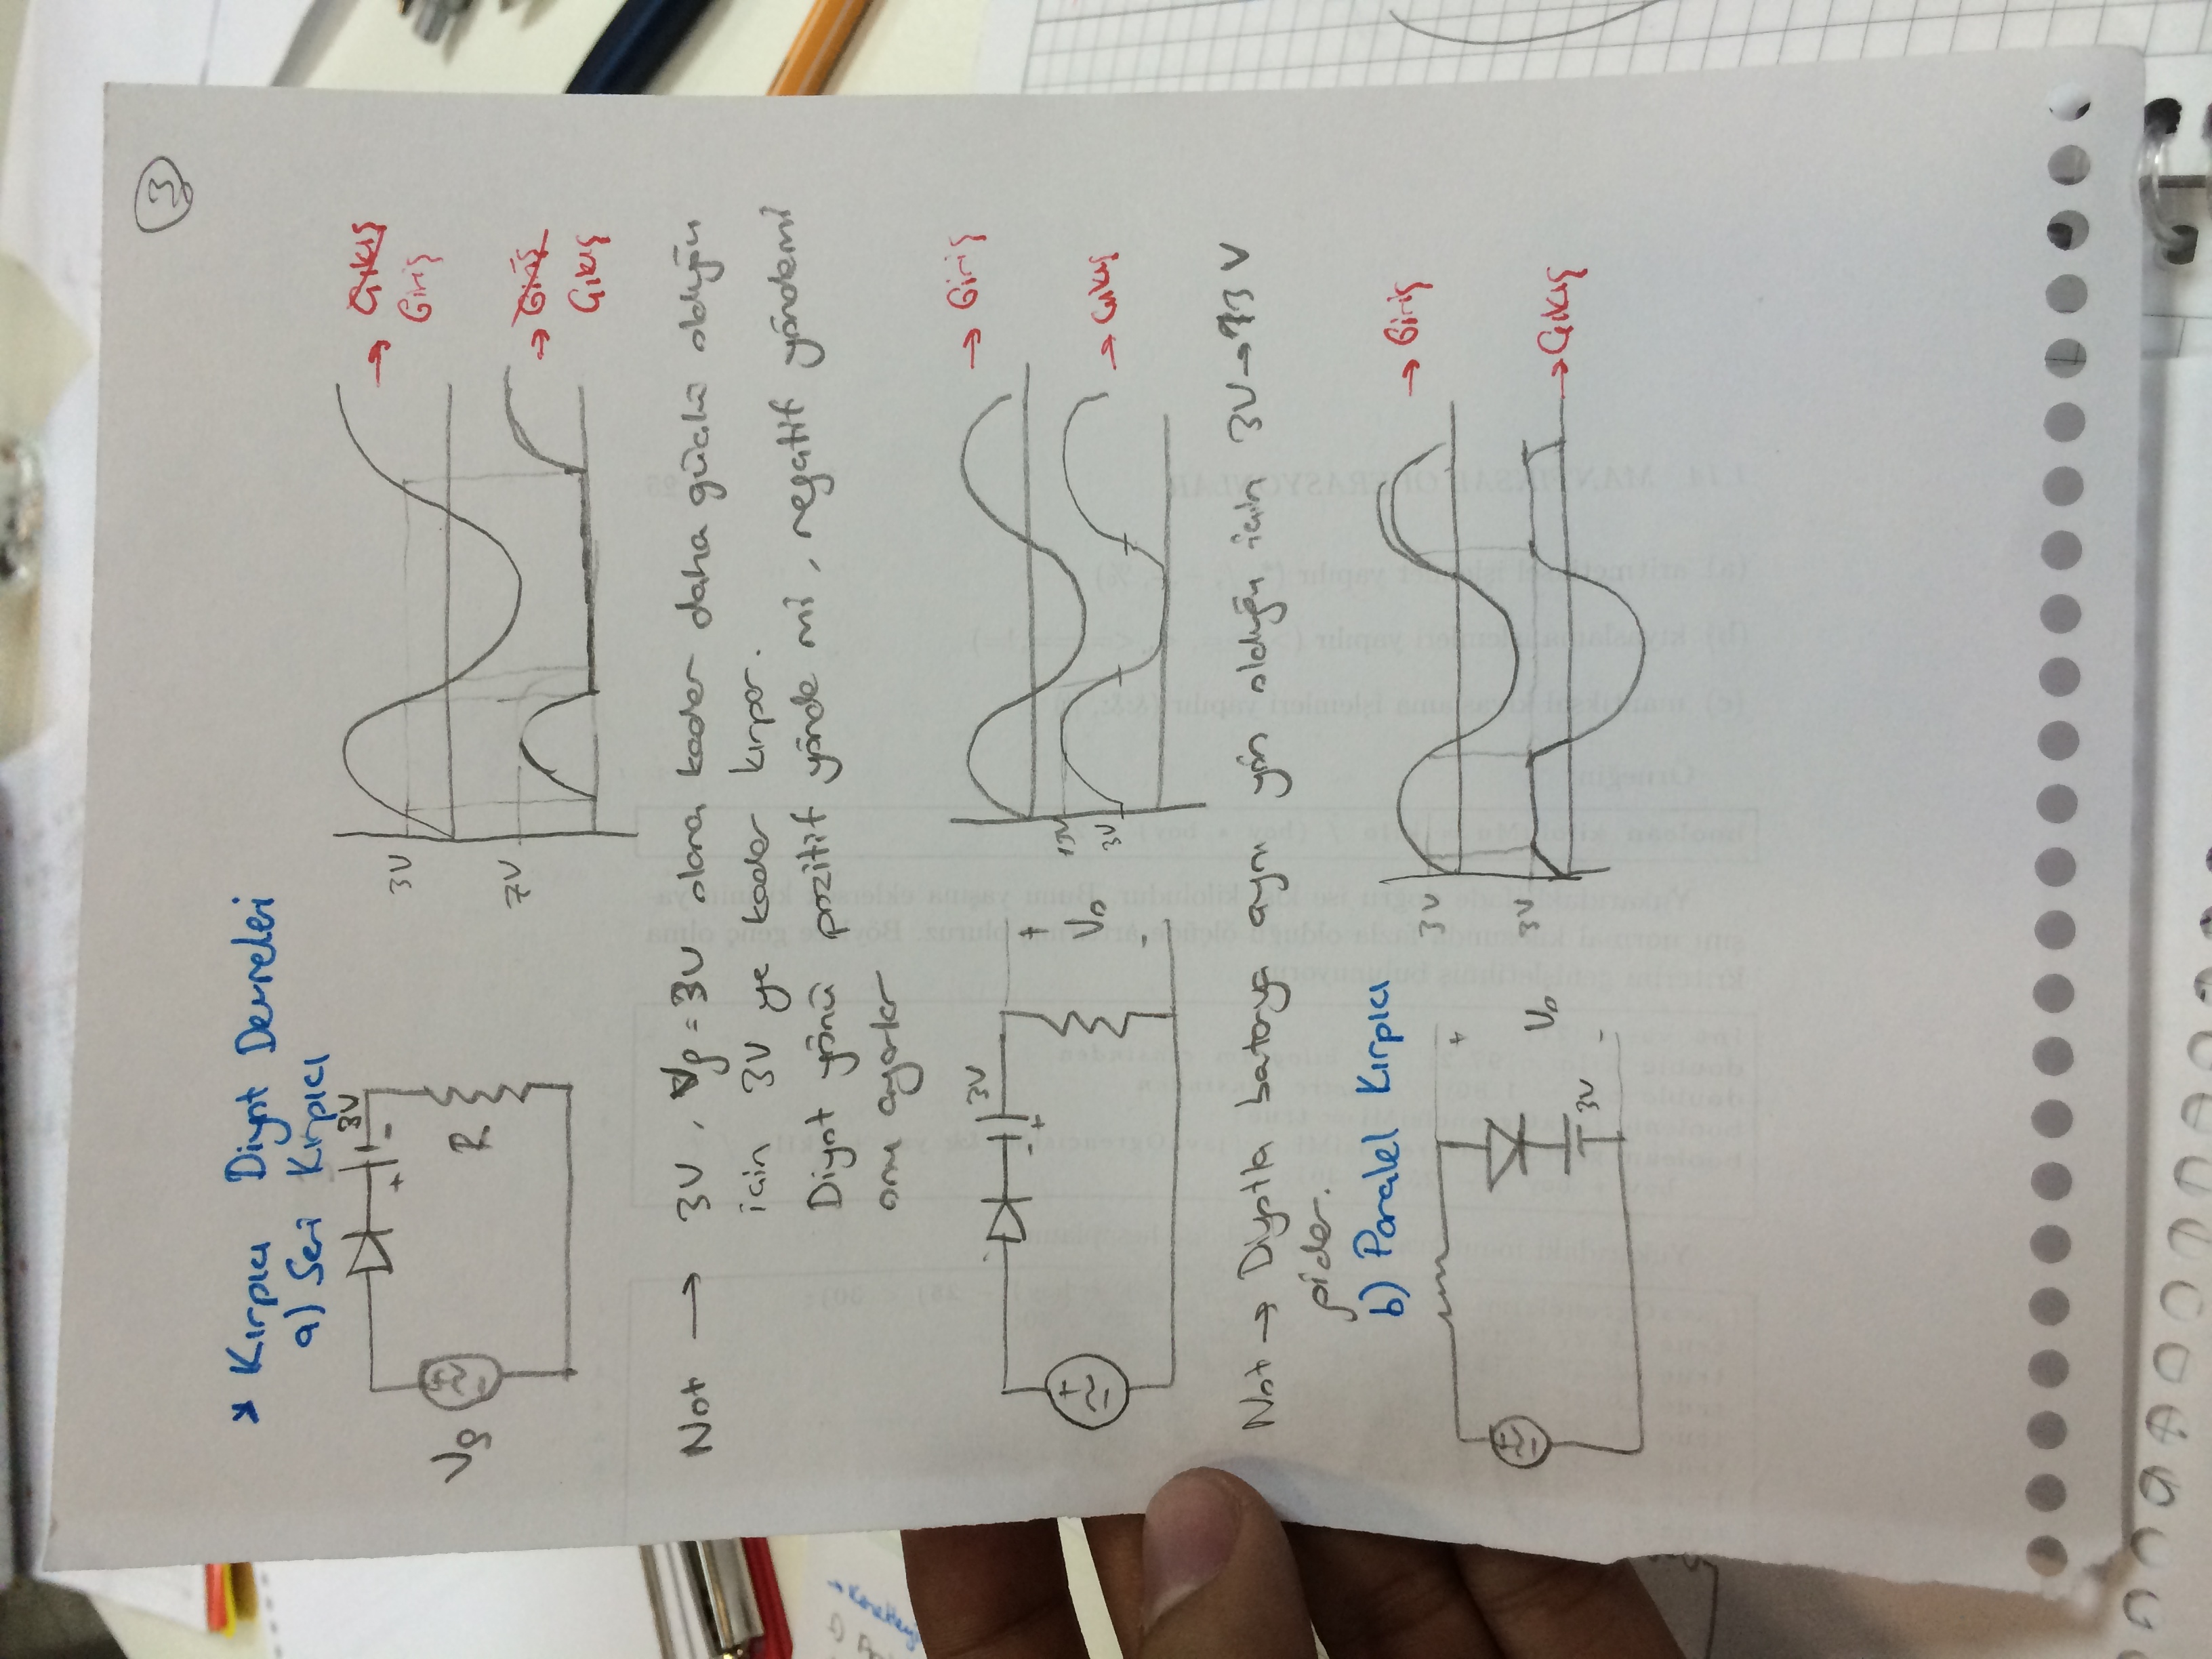 3
* Kırpıcı Diyot Devreleri
a) Seri Kırpıcı
3V
+ -
Vg
+
-
R
3V
7V
→ Çıkış
Giriş
→ Giriş
Çıkış
Not → 3V, Vg = 3V olana kadar daha güçlü olduğu
için 3V ye kadar kırpar.
Diyot yönü pozitif yönde mi, negatif yöndemi
onu ayarlar
3V
- +
+
-
+
Vo
-
13V
3V
→ Giriş
→ Çıkış
Not → Diyotla batarya aynı yön olduğu için 3V→13V
gider.
b) Paralel Kırpıcı
+
-
3V
+
Vo
-
3V
3V
→ Giriş
→ Çıkış